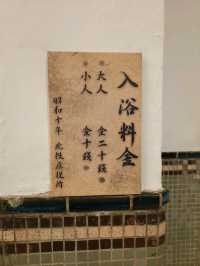 入浴料金
大人 金二十銭
小人 金十銭
昭和十年 北投庄役所